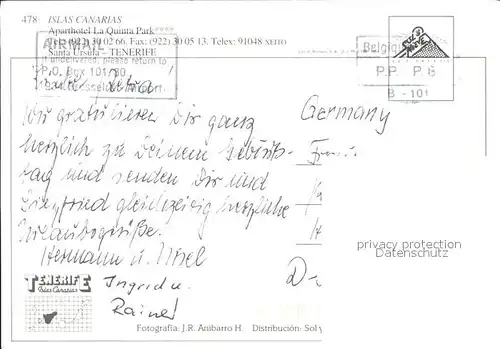 478 ISLAS CANARIAS
Aparthotel La Quinta Park
Tel: (922) 30 02 66. Fax: (922) 30 05 13. Telex: 91048 NEITO
Santa Ursula – TENERIFE
AIRMAIL
If undelivered, please return to
P.O. Box 101/80
Belgi
P.P. P.B
B - 101
Petra!
Wir gratulieren Dir ganz
herzlich zu Deinem Geburts-
tag und senden Dir und
Siegfried gleichzeitig herzliche
Urlaubsgrüße.
Hermann u.
Ingrid u.
Rainer
Germany
D-
privacy protection
Datenschutz
TENERIFE
Islas Canarias
Fotografía: J.R. Anibarro H. Distribución: Sol y